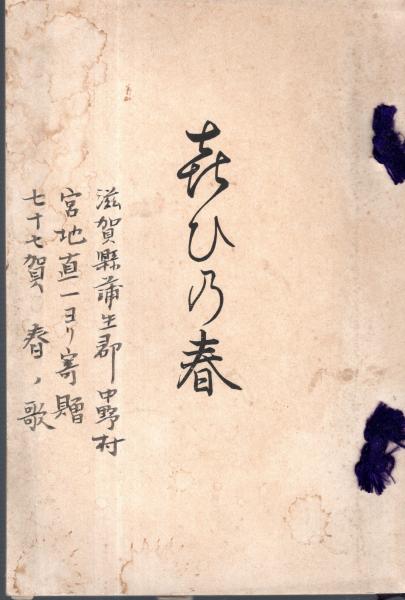 喜ひ乃春
滋賀縣蒲生郡中野村
宮地直一ヨリ寄贈
七十七賀 春ノ歌